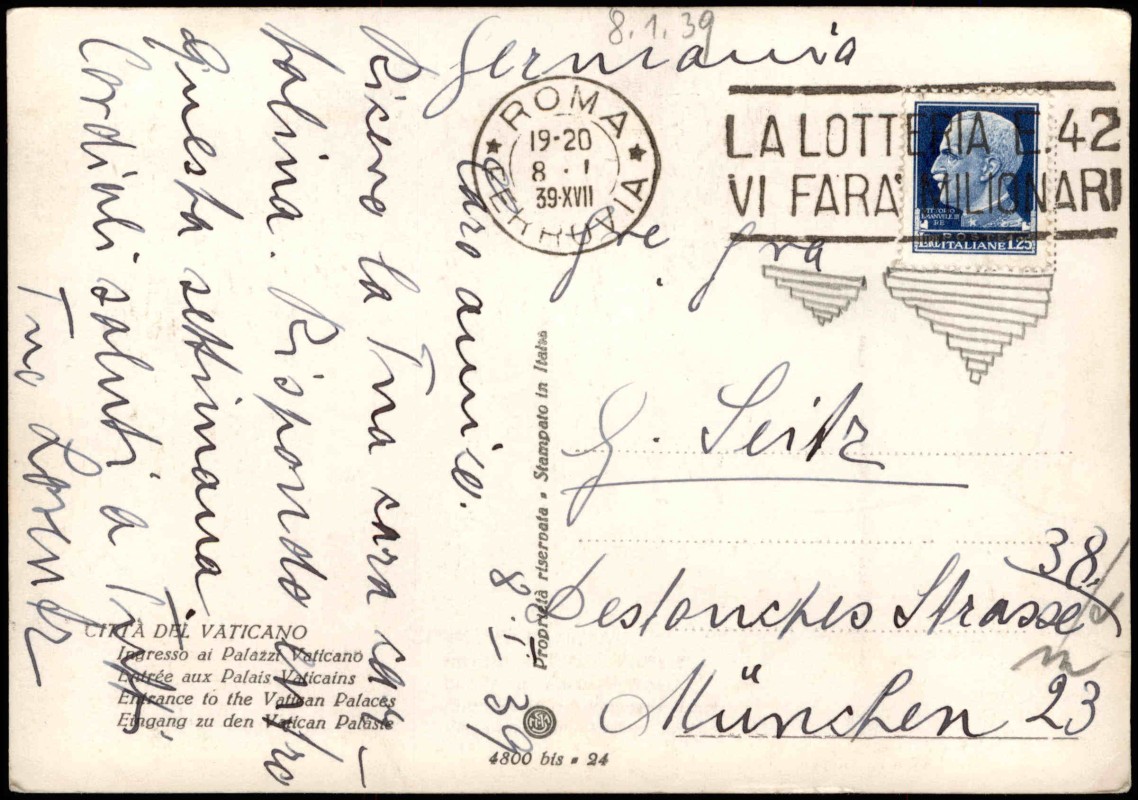 8.1.39
Germania
ROMA
19-20
8 . I
39·XVII
FERROVIA
LA LOTTERIA E. 42
VI FARA' MILIONARI
POSTE ITALIANE L1.25
G. Seitz
Destouches Strasse 38/
München 23
8. I 39
Caro amico.
Ricevo la Tua cara ca-
rtolina. Rispondo entro
questa settimana
Cordiali saluti a Tutti.
Tuo Lorenz
CITTÀ DEL VATICANO
Ingresso ai Palazzi Vaticano
Entrée aux Palais Vaticains
Entrance to the Vatican Palaces
Eingang zu den Vatican Paläste
Proprietà riservata • Stampato in Italia
4800 bis • 24